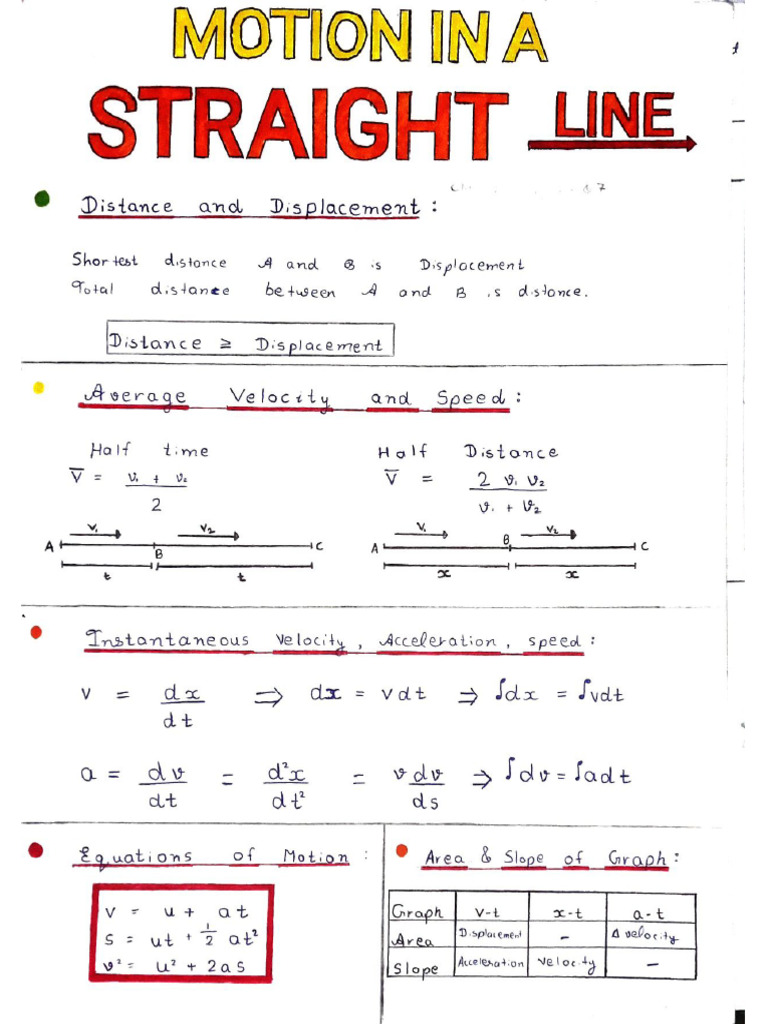 MOTION IN A
STRAIGHT LINE
Distance and Displacement :
Shortest distance A and B is Displacement
Total distance between A and B is distance.
Distance ≥ Displacement
Average Velocity and Speed :
Half time
V̅ = v₁ + v₂ / 2
v₁ v₂
A B C
t t
Half Distance
V̅ = 2 v₁ v₂ / v₁ + v₂
v₁ v₂
A B C
x x
Instantaneous Velocity, Acceleration, speed :
v = dx/dt ⇒ dx = vdt ⇒ ∫dx = ∫vdt
a = dv/dt = d²x/dt² = vdv/ds ⇒ ∫dv = ∫adt
Equations of Motion :
v = u + at
s = ut + 1/2 at²
v² = u² + 2as
Area & Slope of Graph :
Graph v-t x-t a-t
Area Displacement - Δ velocity
Slope Acceleration velocity -